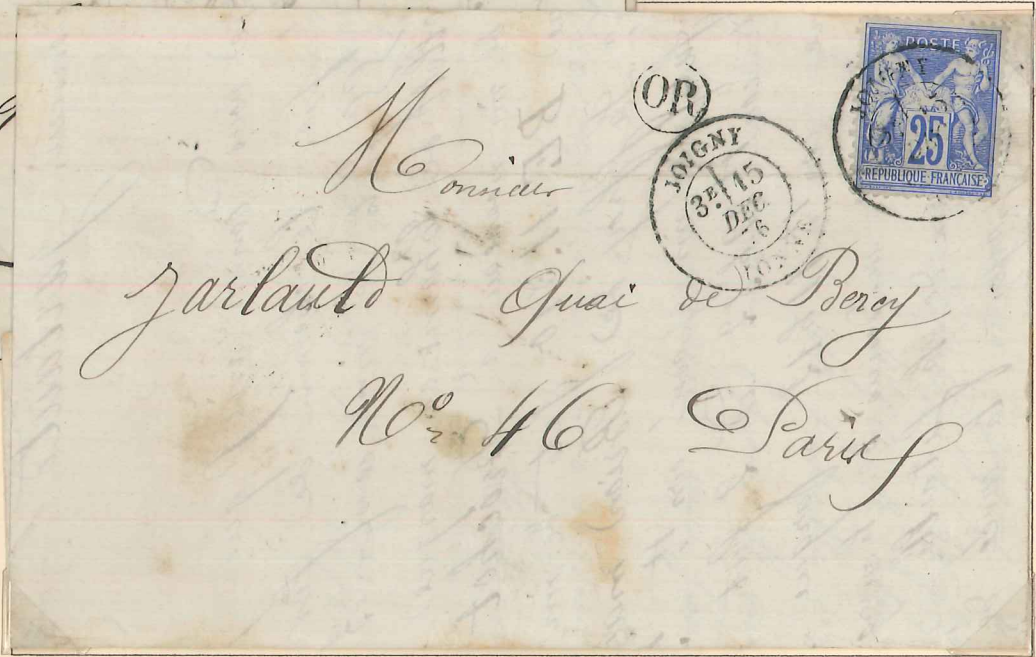 POSTE
25
REPUBLIQUE FRANÇAISE
JOIGNY
OR
JOIGNY
3E 15
DEC
76
YONNE
Monsieur
Jarlauld Quai de Bercy
No 46 Paris